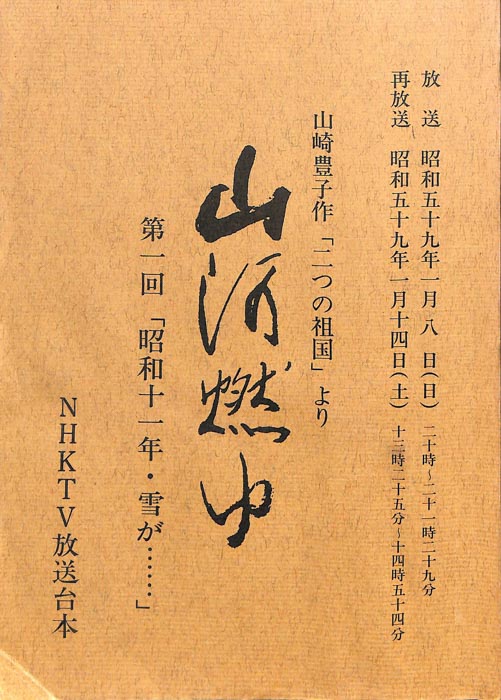 放送 昭和五十九年一月八日(日) 二十時~二十一時二十九分
再放送 昭和五十九年一月十四日(土) 十三時二十五分~十四時五十四分
山崎豊子作「二つの祖国」より
山河燃ゆ
第一回「昭和十一年・雪が……」
NHKTV放送台本